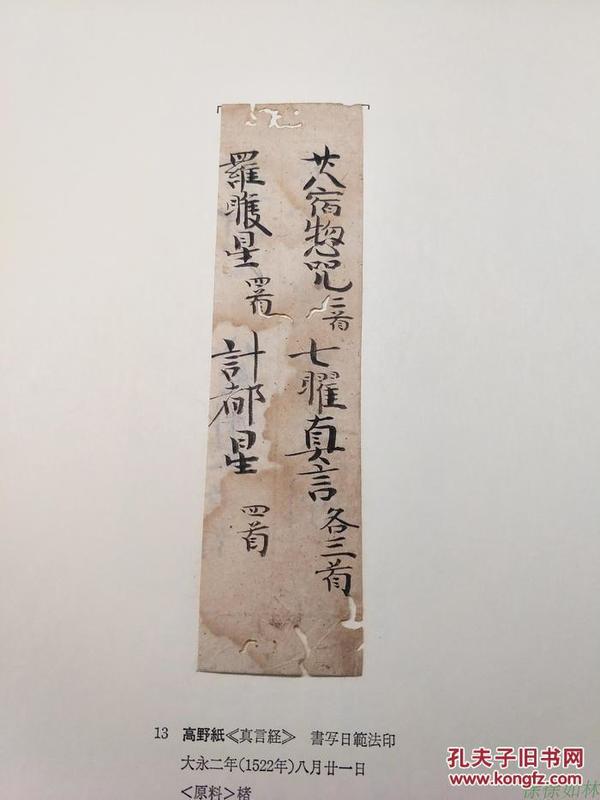 廿八宿惣咒 二首 七曜真言 各三首
羅睺星 四首 計都星 四首
13 高野紙≪真言経≫ 書写日範法印
大永二年(1522年)八月廿一日
＜原料＞楮
孔夫子旧书网
www.kongfz.com